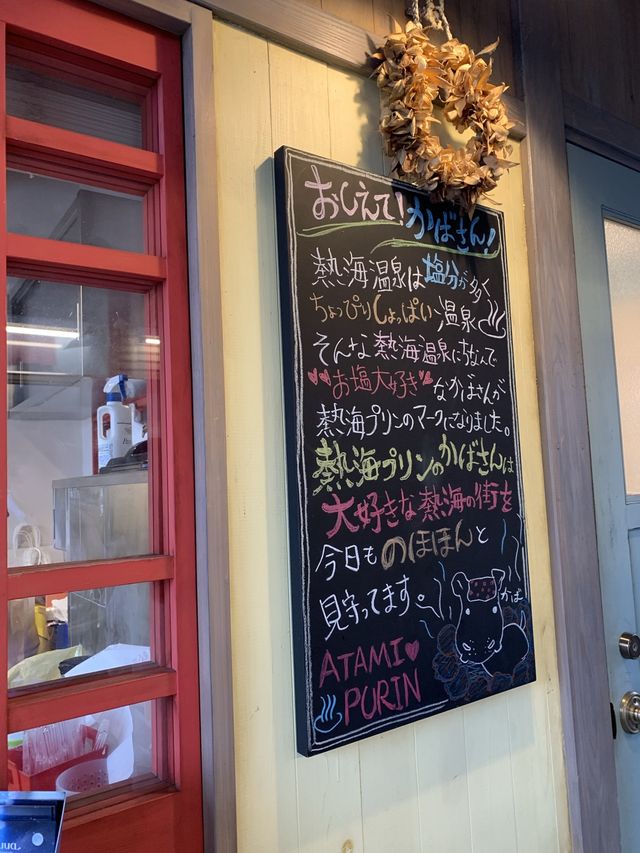 おしえて!かばさん!
熱海温泉は塩分が多く
ちょっぴりしょっぱい温泉♨
そんな熱海温泉にちなんで
♥♥お塩大好き♥なかばさんが
熱海プリンのマークになりました。
熱海プリンのかばさんは
大好きな熱海の街を
今日も のほほんと
見守ってます。
かば
ATAMI♥
♨PURIN